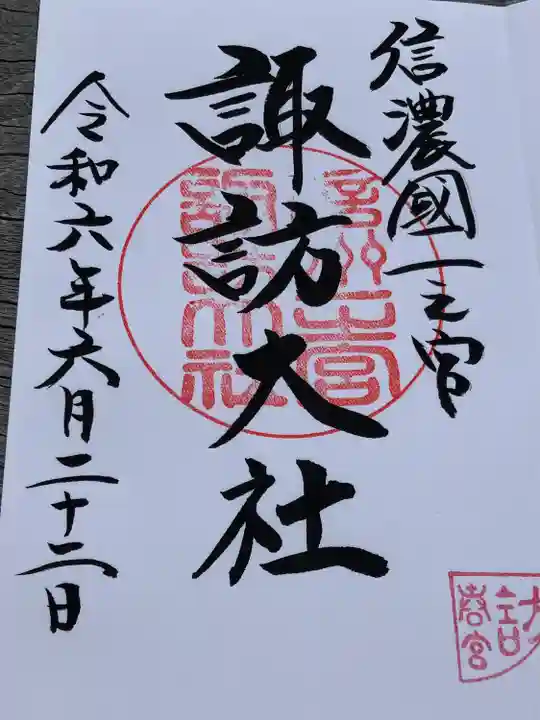 信濃國一之宮
諏訪大社
令和六年六月二十二日
春宮